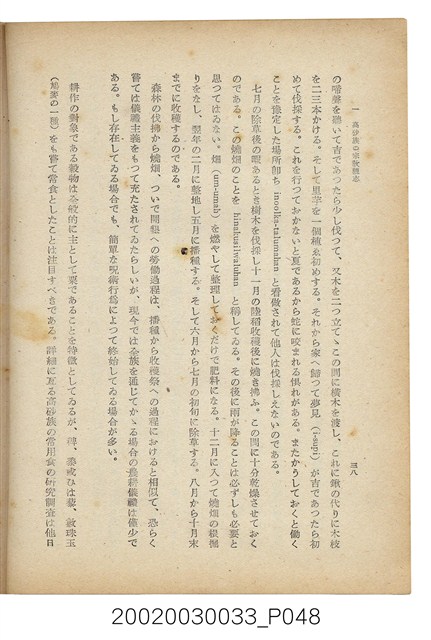 一　高砂族の宗教概念
三八
の囁聲を聽いて吉であつたら少し伐つて、叉木を二つ立てゝこの間に横木を渡し、これに鍬の代りに木枝
を二三本かける。そして里芋を一個植ゑ初めする。それから家へ歸つて夢見 (i-supi) が吉であつたら初
めて伐採する。これを行つておかないと夏であるから蛇に咬まれる惧れがある。またかうしておくと働く
ことを豫定した場所卽ち inoolka-talumahan と看做されて他人は伐採しえないのである。
七月の除草後の暇あるとき樹木を伐採し十一月の陸稻收穫後に燒き拂ふ。この間に十分乾燥させておく
のである。この燒畑のことを hinakusilwaluhan と稱してゐる。その後に雨が降ることは必ずしも必要と
思つてはゐない。畑 (um-umah) を燃やして整理しておくだけで肥料になる。十二月に入つて燒畑の根掘
りをなし、翌年の二月に整地し五月に播種する。そして六月から七月の初旬に除草する。八月から十月末
までに收穫するのである。
森林の伐拂から燒畑、ついで開墾への勞働過程は、播種から收穫祭への過程におけると相似て、恐らく
嘗ては儀禮主義をもつて充たされてゐたらしいが、現今では全族を通じてかゝる場合の農耕儀禮は僅少で
ある。もし存在してゐる場合でも、簡單な呪術行爲によつて終始してゐる場合が多い。
耕作の對象である穀物は全般的に主として粟であることを特徵としてゐるが、稗、黍或ひは薏苡珠玉
の一種）をも嘗て常食としたことは注目すべきである。詳細に亙る高砂族の常用食の硏究調查は他日
20020030033_P048